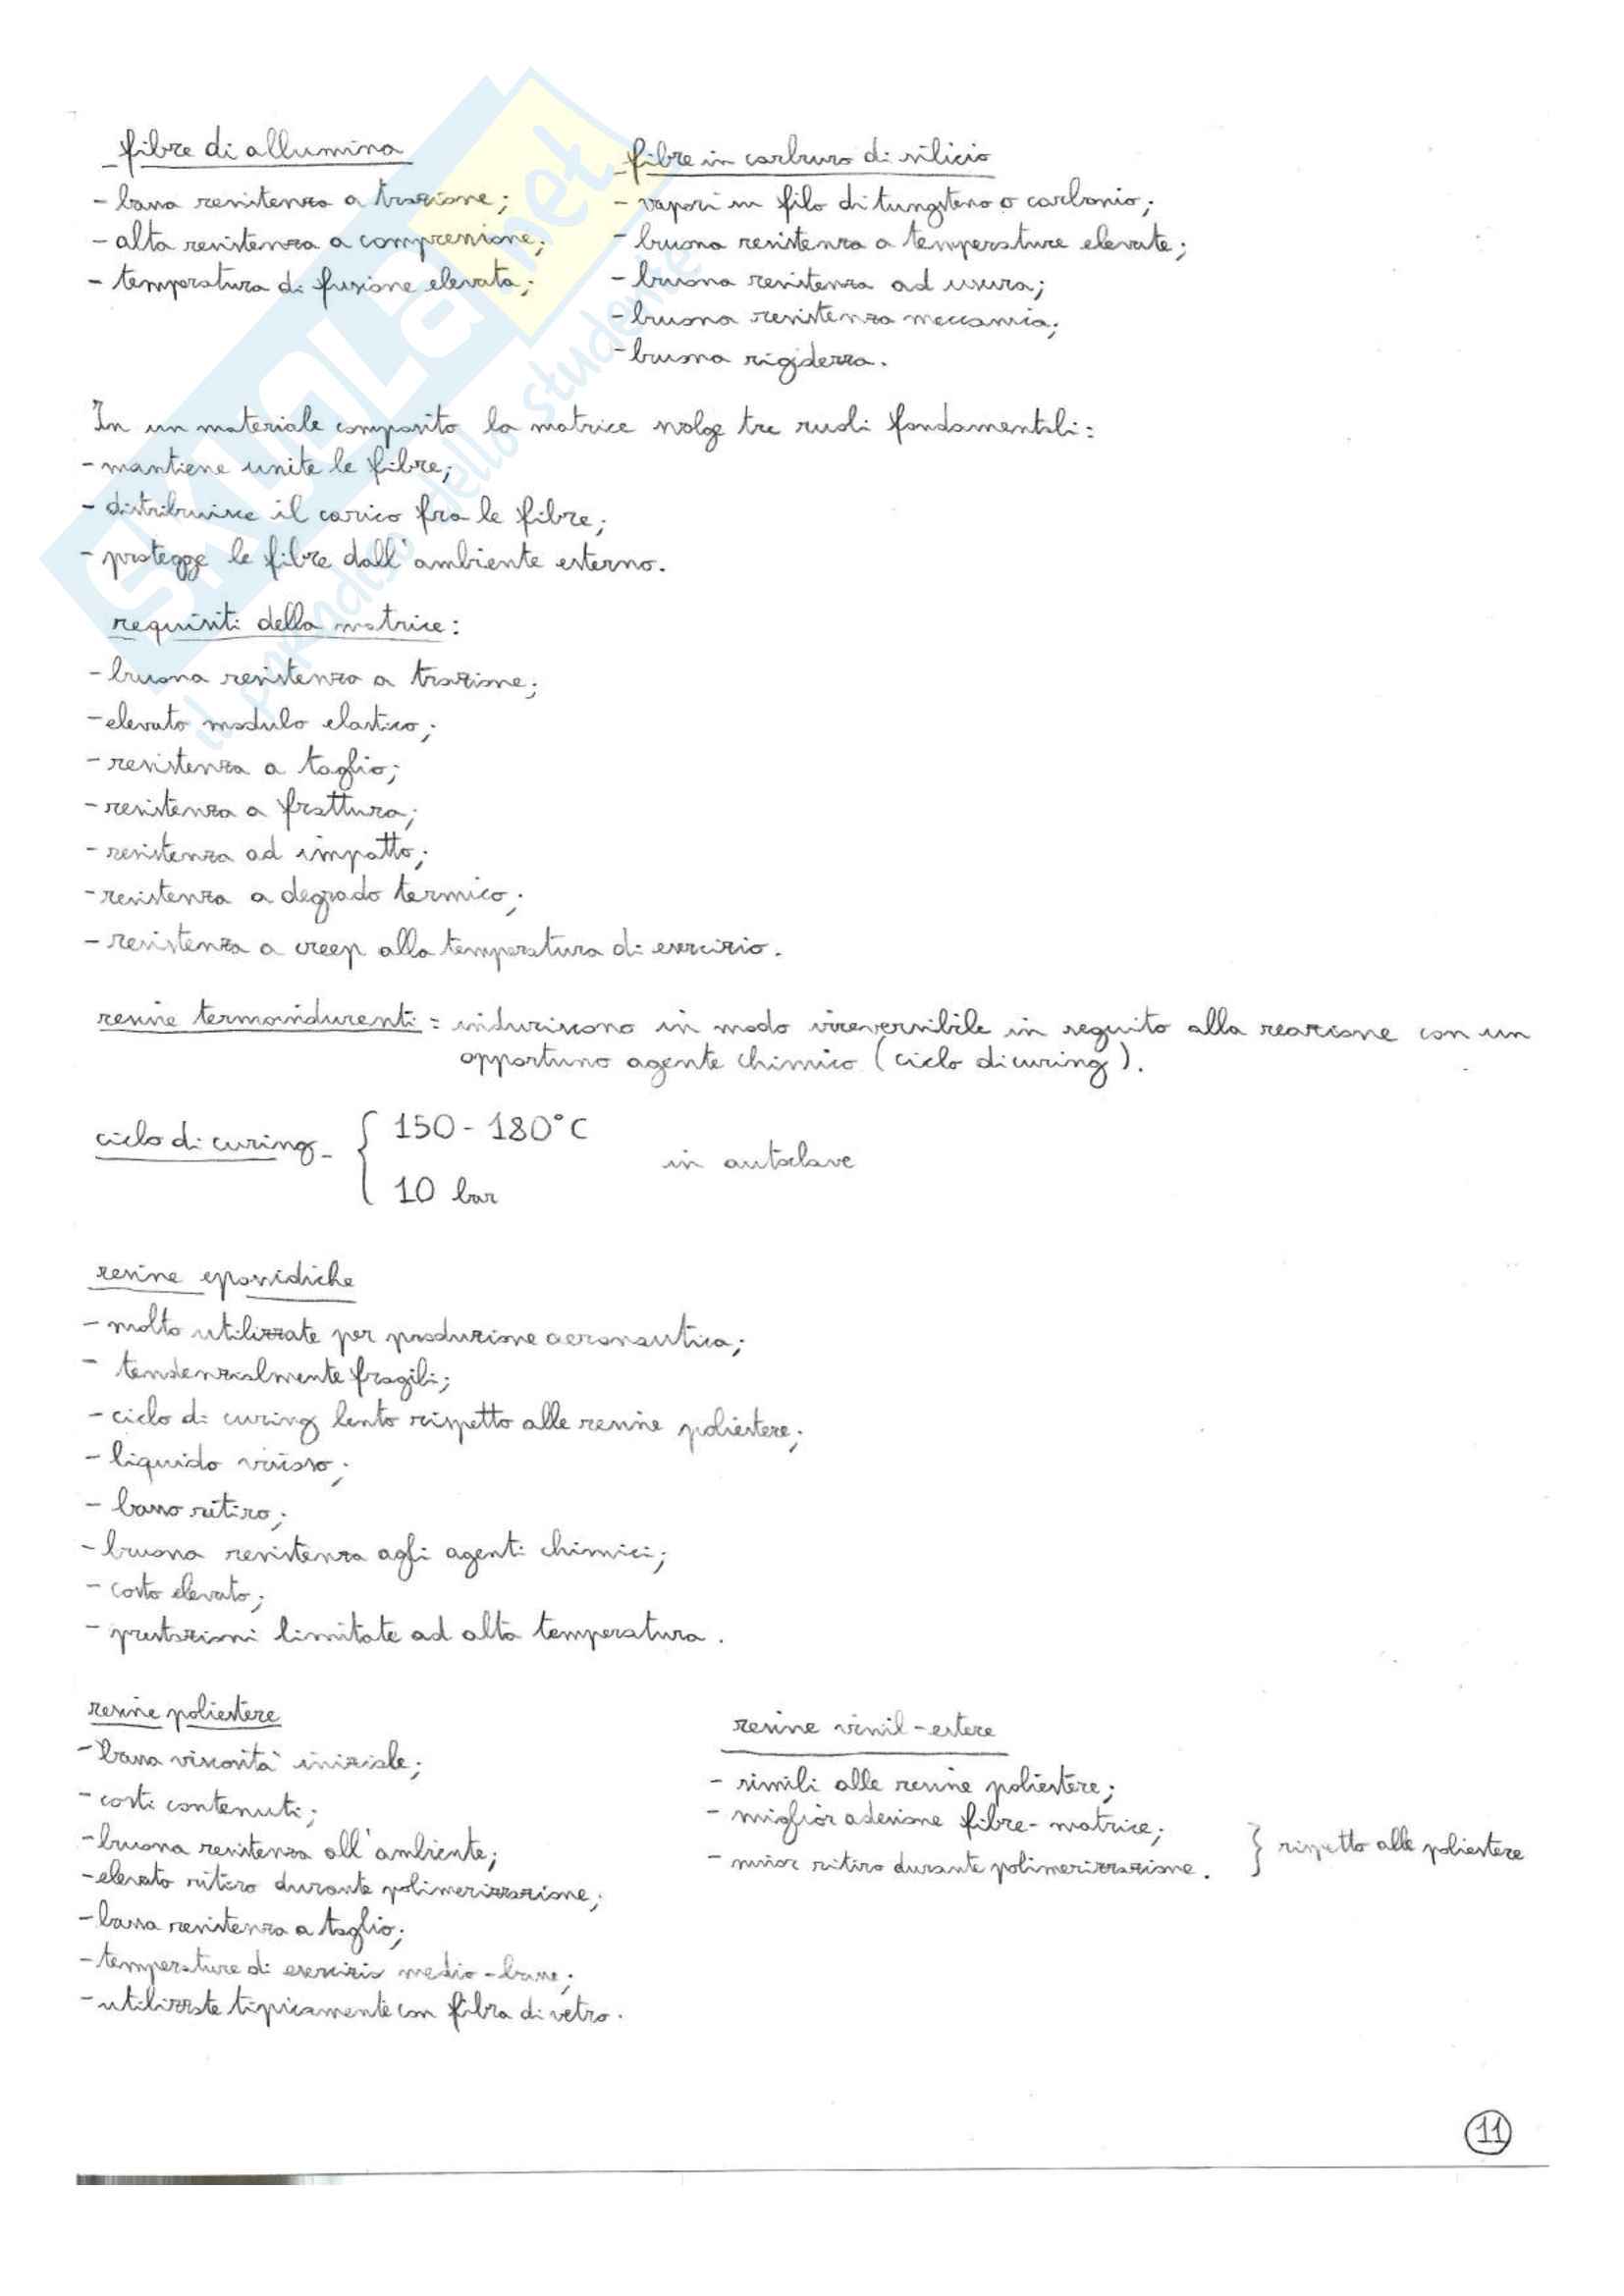 - fibre di allumina
- bassa resistenza a trazione;
- alta resistenza a compressione;
- temperatura di fusione elevata;
- fibre in carburo di silicio
- vapori in filo di tungsteno o carbonio;
- buona resistenza a temperature elevate;
- buona resistenza ad usura;
- buona resistenza meccanica;
- buona rigidezza.
In un materiale composito la matrice svolge tre ruoli fondamentali:
- mantiene unite le fibre;
- distribuisce il carico fra le fibre;
- protegge le fibre dall'ambiente esterno.
requisiti della matrice:
- buona resistenza a trazione;
- elevato modulo elastico;
- resistenza a taglio;
- resistenza a frattura;
- resistenza ad impatto;
- resistenza a degrado termico;
- resistenza a creep alla temperatura di esercizio.
resine termoindurenti = induriscono in modo irreversibile in seguito alla reazione con un
opportuno agente chimico (ciclo di curing).
ciclo di curing - { 150 - 180°C
10 bar
in autoclave
resine epossidiche
- molto utilizzate per produzione aeronautica;
- tendenzialmente fragili;
- ciclo di curing lento rispetto alle resine poliestere;
- liquido viscoso;
- basso ritiro;
- buona resistenza agli agenti chimici;
- costo elevato;
- prestazioni limitate ad alta temperatura.
resine poliestere
- bassa viscosità iniziale;
- costi contenuti;
- buona resistenza all'ambiente;
- elevato ritiro durante polimerizzazione;
- bassa resistenza a taglio;
- temperature di esercizio medio-basse;
- utilizzate tipicamente con fibra di vetro.
resine vinil-estere
- simili alle resine poliestere;
- miglior adesione fibre-matrice;
- minor ritiro durante polimerizzazione.
} rispetto alle poliestere
11
SKUOLA.net
il paradiso dello studente